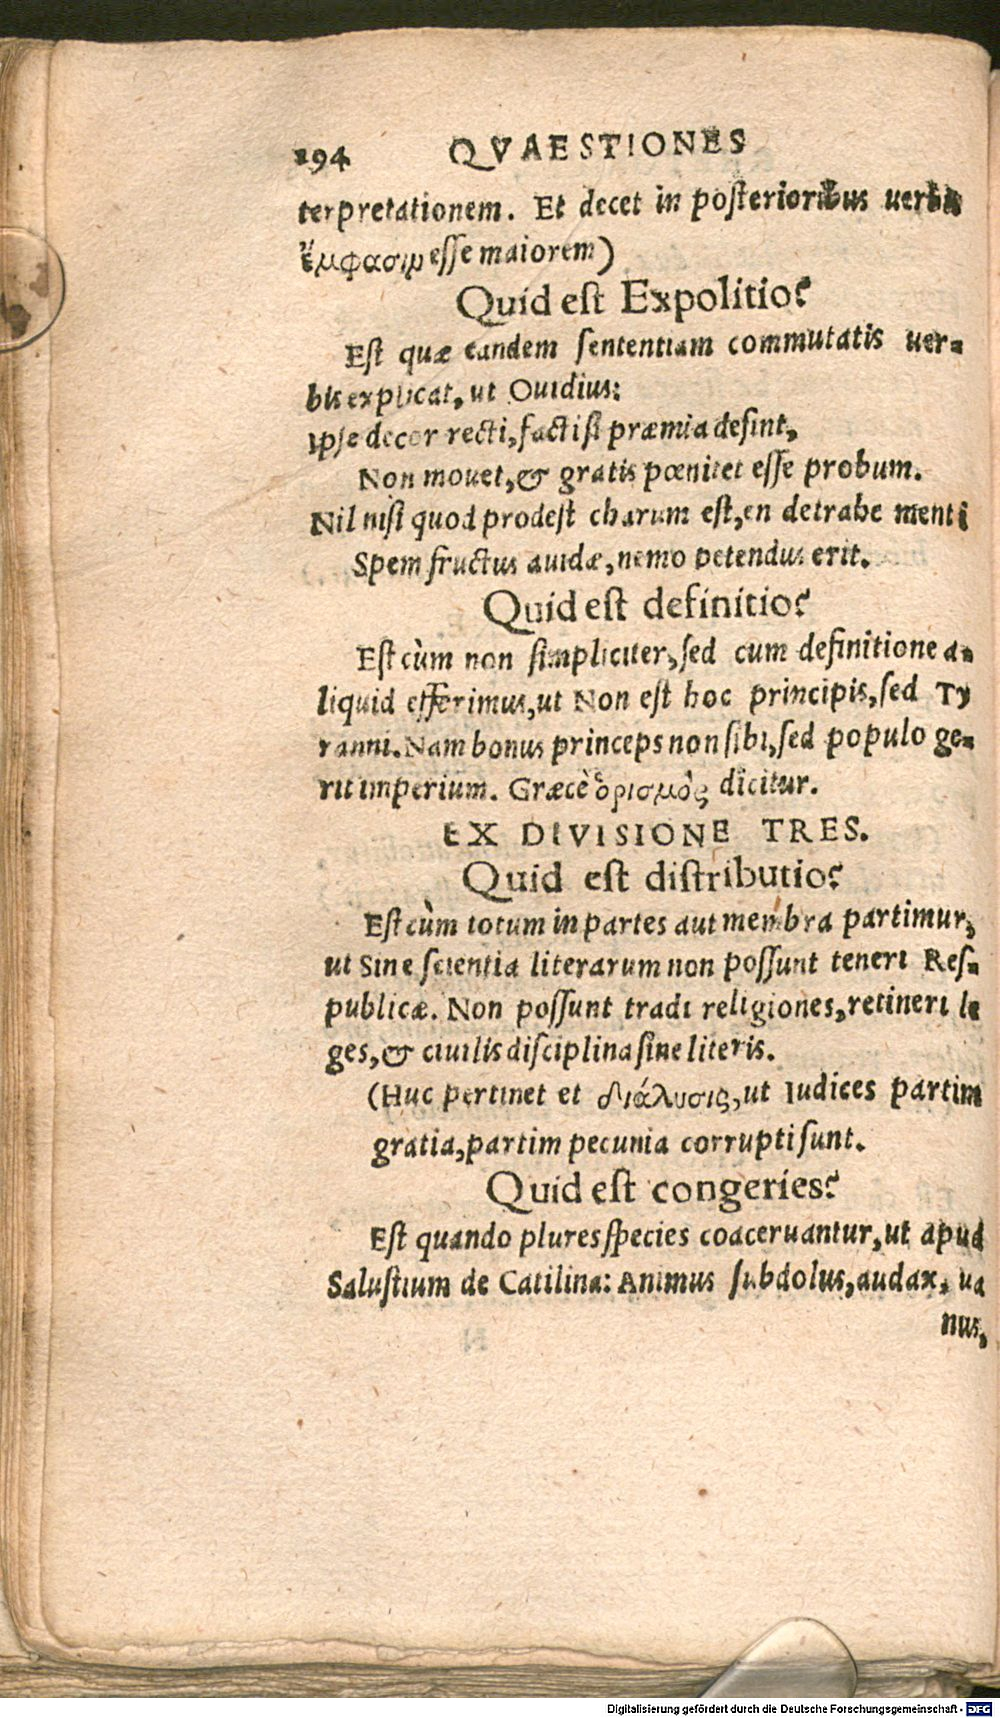 194 QVAESTIONES
terpretationem. Et decet in posterioribus uerbis
ἔμφασιμ esse maiorem)
Quid est Expolitio?
Est quæ eandem sententiam commutatis uer-
bis explicat, ut Ouidius:
Ipse decor recti, facti si præmia desint,
Non mouet, & gratis pœnitet esse probum.
Nil nisi quod prodest charum est, en detrahe menti
Spem fructus auidæ, nemo petendus erit.
Quid est definitio?
Est cùm non simpliciter, sed cum definitione a-
liquid efferimus, ut Non est hoc principis, sed Ty
ranni. Nam bonus princeps non sibi, sed populo ge-
rit imperium. Græcè ὁρισμὸς dicitur.
EX DIVISIONE TRES.
Quid est distributio?
Est cùm totum in partes aut membra partimur,
ut Sine scientia literarum non possunt teneri Res-
publicæ. Non possunt tradi religiones, retineri le
ges, & ciuilis disciplina sine literis.
(Huc pertinet et διάλυσις, ut Iudices partim
gratia, partim pecunia corrupti sunt.
Quid est congeries?
Est quando plures species coaceruantur, ut apud
Salustium de Catilina: Animus subdolus, audax, ua
nus,
Digitalisierung gefördert durch die Deutsche Forschungsgemeinschaft - DFG